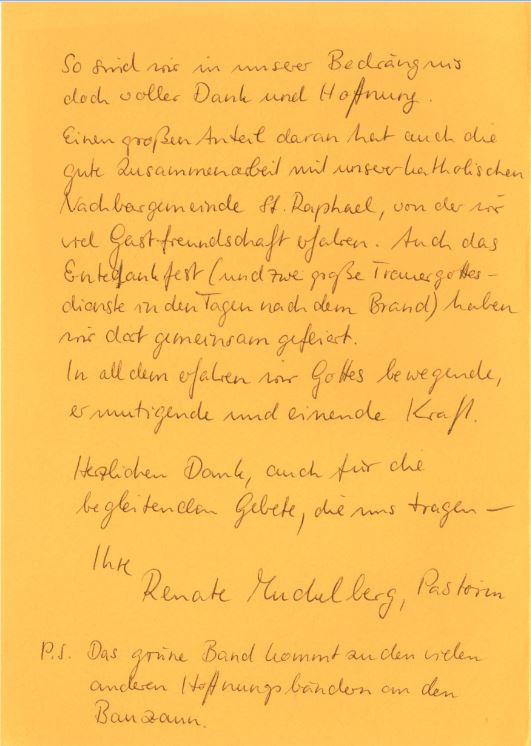 So sind wir in unserer Bedrängnis
doch voller Dank und Hoffnung.
Einen großen Anteil daran hat auch die
gute Zusammenarbeit mit unserer katholischen
Nachbargemeinde St. Raphael, von der wir
viel Gastfreundschaft erfahren. Auch das
Erntedankfest (und zwei große Trauergottes-
dienste in den Tagen nach dem Brand) haben
wir dort gemeinsam gefeiert.
In all dem erfahren wir Gottes bewegende,
ermutigende und einende Kraft.
Herzlichen Dank, auch für die
begleitenden Gebete, die uns tragen –
Ihre
Renate, Pastorin
P.S. Das grüne Band kommt zu den vielen
anderen Hoffnungsbändern an den
Bauzaun.